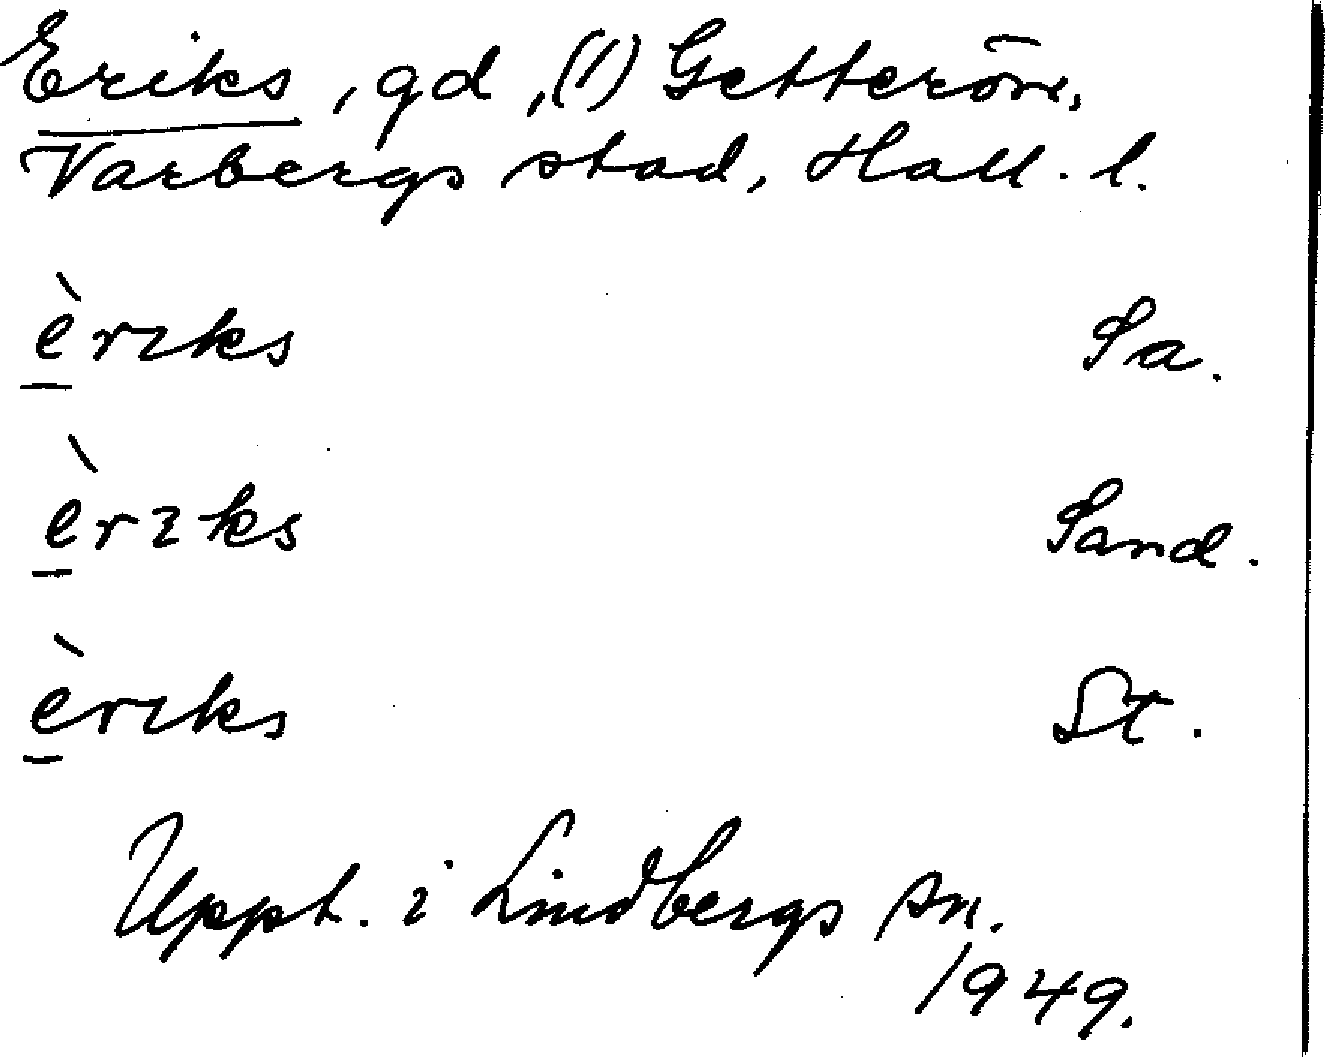 Eriks, gd, (1) Getterön,
Varbergs stad, Hall. l.
èrıks Sa.
èrıks Sand.
èrıks St.
Uppt. i Lindbergs sn.
1949.